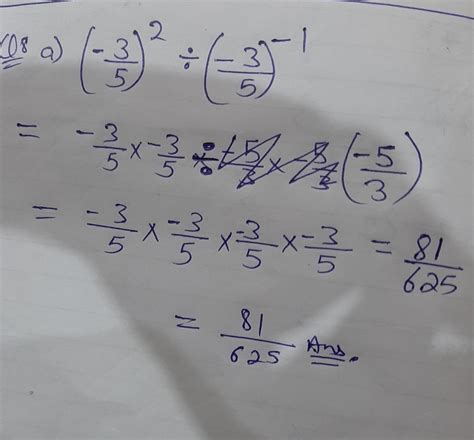 Q8 a) (-3/5)^2 ÷ (-3/5)^-1
= -3/5 × -3/5 ÷ (-5/3)
= -3/5 × -3/5 × -3/5 × -3/5 = 81/625
= 81/625 Ans.